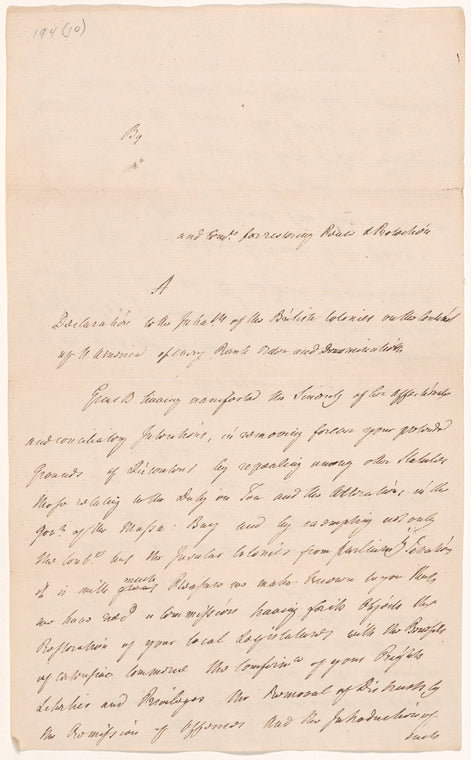 194 (10)
By
and Com.rs for restoring Peace & Protection
A
Declaration to the Inhabts of the British Colonies on the Continent
of N America of every Rank Order and Denomination
Great B. having manifested the Sincerity of her affectionate
and conciliatory Intentions, in removing forever your pretended
Grounds of Discontent by repealing among other Statutes
those relating to the Duty on Tea and the Alterations in the
Govt. of the Massa: Bay and by exempting not only
the Contl. but the Insular Colonies from Parliamy. Taxation
it is with much Pleasure we make known to you that
we have recd a Commission having for its Objects the
Restoration of your local Legislatures with the Benefits
of extensive Commerce the Confirmn. of your Rights
Liberties and Privileges the Removal of Distrusts by
the Remission of Offences and the Introduction of
such